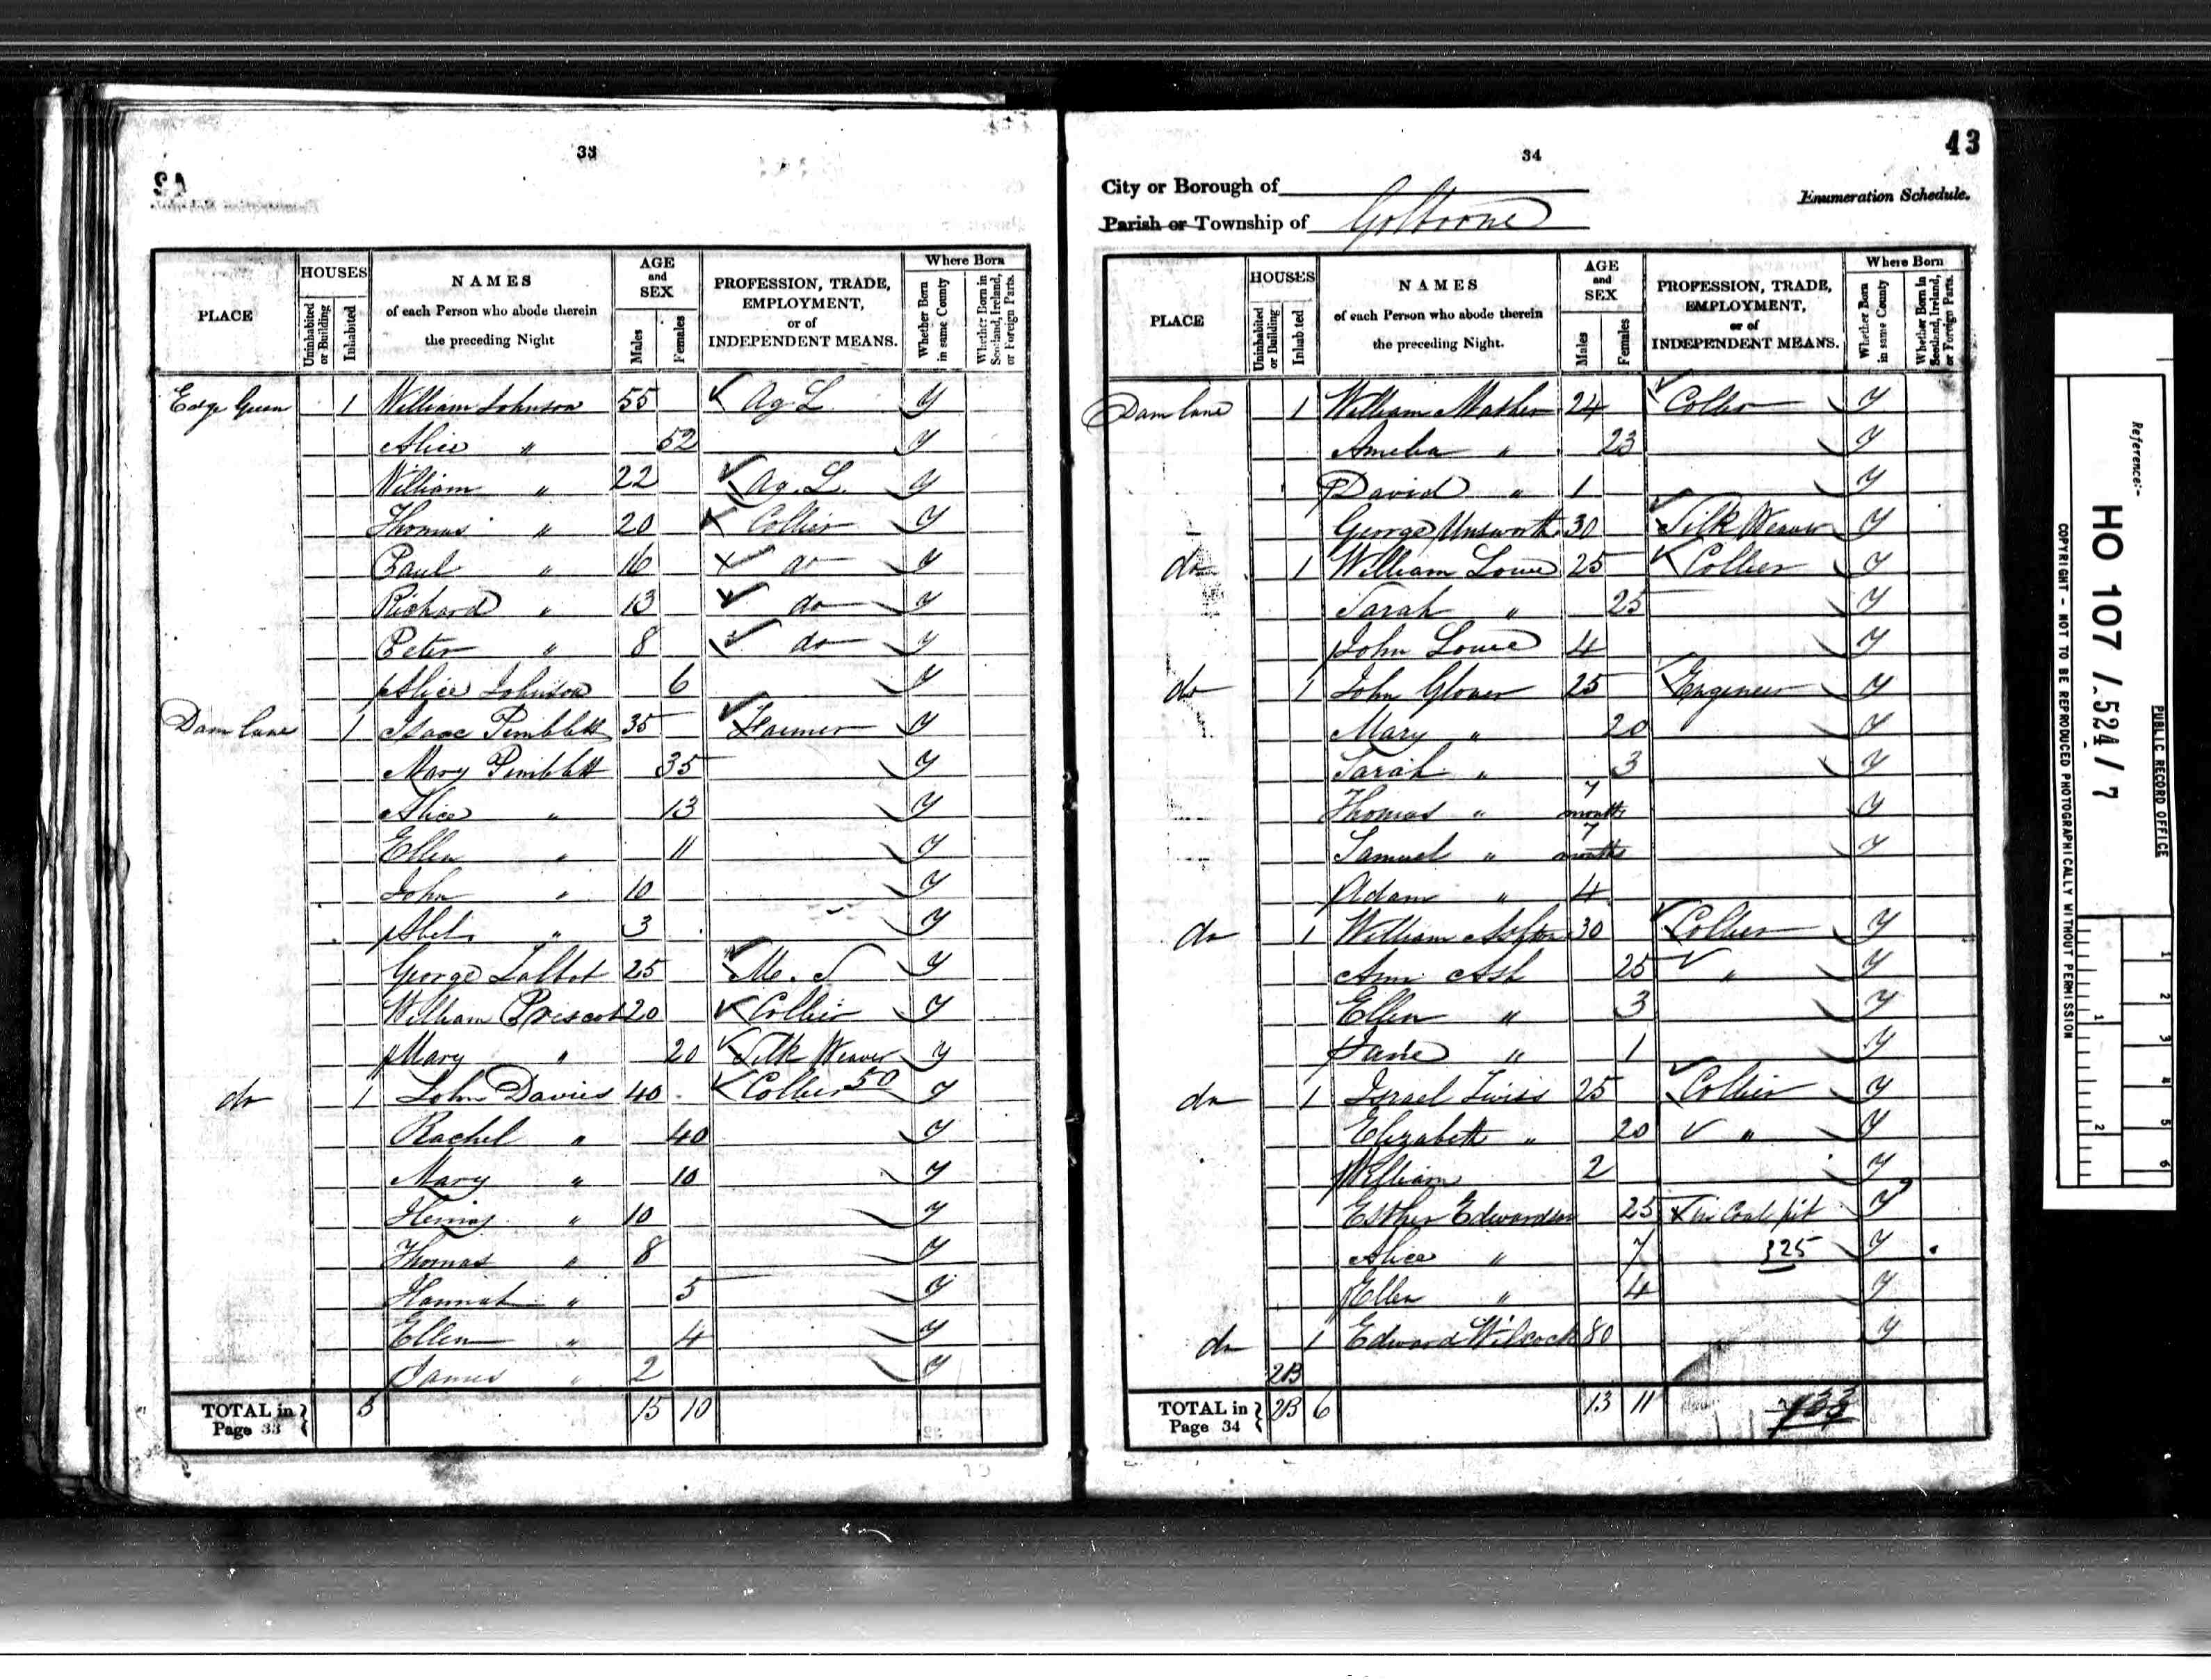 33
HOUSES
NAMES
AGE and SEX
PROFESSION, TRADE, EMPLOYMENT, or of INDEPENDENT MEANS.
Where Born
PLACE
Uninhabited or Building
Inhabited
of each Person who abode therein the preceding Night
Males
Females
Whether Born in same County
Whether Born in Scotland, Ireland, or Foreign Parts.
Edge Green 1 William Johnson 55 Ag L Y
Alice " 52 Y
William " 22 Ag. L. Y
Thomas " 20 Collier Y
Paul " 16 do Y
Richard " 13 do Y
Peter " 8 do Y
Alice Johnson 6 Y
Dam Lane 1 Isaac Pimblett 35 Farmer Y
Mary Pimblett 35 Y
Alice " 13 Y
Ellen " 11 Y
John " 10 Y
Abel " 3 Y
George Talbot 25 M. S Y
William Prescot 20 Collier Y
Mary " 20 Silk Weaver Y
do 1 John Davies 40 Collier 50 Y
Rachel " 40 Y
Mary " 10 Y
Henry " 10 Y
Thomas " 8 Y
Hannah " 5 Y
Ellen " 4 Y
James " 2 Y
TOTAL in Page 33 } 15 10
34
43
City or Borough of
Enumeration Schedule.
Parish or Township of Golborne
HOUSES
NAMES
AGE and SEX
PROFESSION, TRADE, EMPLOYMENT, or of INDEPENDENT MEANS.
Where Born
PLACE
Uninhabited or Building
Inhabited
of each Person who abode therein the preceding Night.
Males
Females
Whether Born in same County
Whether Born in Scotland, Ireland, or Foreign Parts.
Dam Lane 1 William Mather 24 Collier Y
Amelia " 23 Y
David " 1 Y
George Unsworth 30 Silk Weaver Y
do 1 William Lowe 25 Collier Y
Sarah " 25 Y
John Lowe 4 Y
do 1 John Glover 25 Engineer Y
Mary " 20 Y
Sarah " 3 Y
Thomas " 7 months Y
Samuel " 7 months Y
Adam " 4
do 1 William Ashton 30 Collier Y
Ann Ash 25 " Y
Ellen " 3 Y
Jane " 1 Y
do 1 Israel Twiss 25 Collier Y
Elizabeth " 20 " Y
William 2 Y
Esther Edwardson 25 in Coal pit Y
Alice " 7 325 Y
Ellen " 4 Y
do 1 Edward Wilcock 80 Y
2B
TOTAL in Page 34 } 2B 6 13 11
Reference:-
HO 107 / 524 / 7
PUBLIC RECORD OFFICE
COPYRIGHT - NOT TO BE REPRODUCED PHOTOGRAPHICALLY WITHOUT PERMISSION
1
2
1
2
3
4
5
6